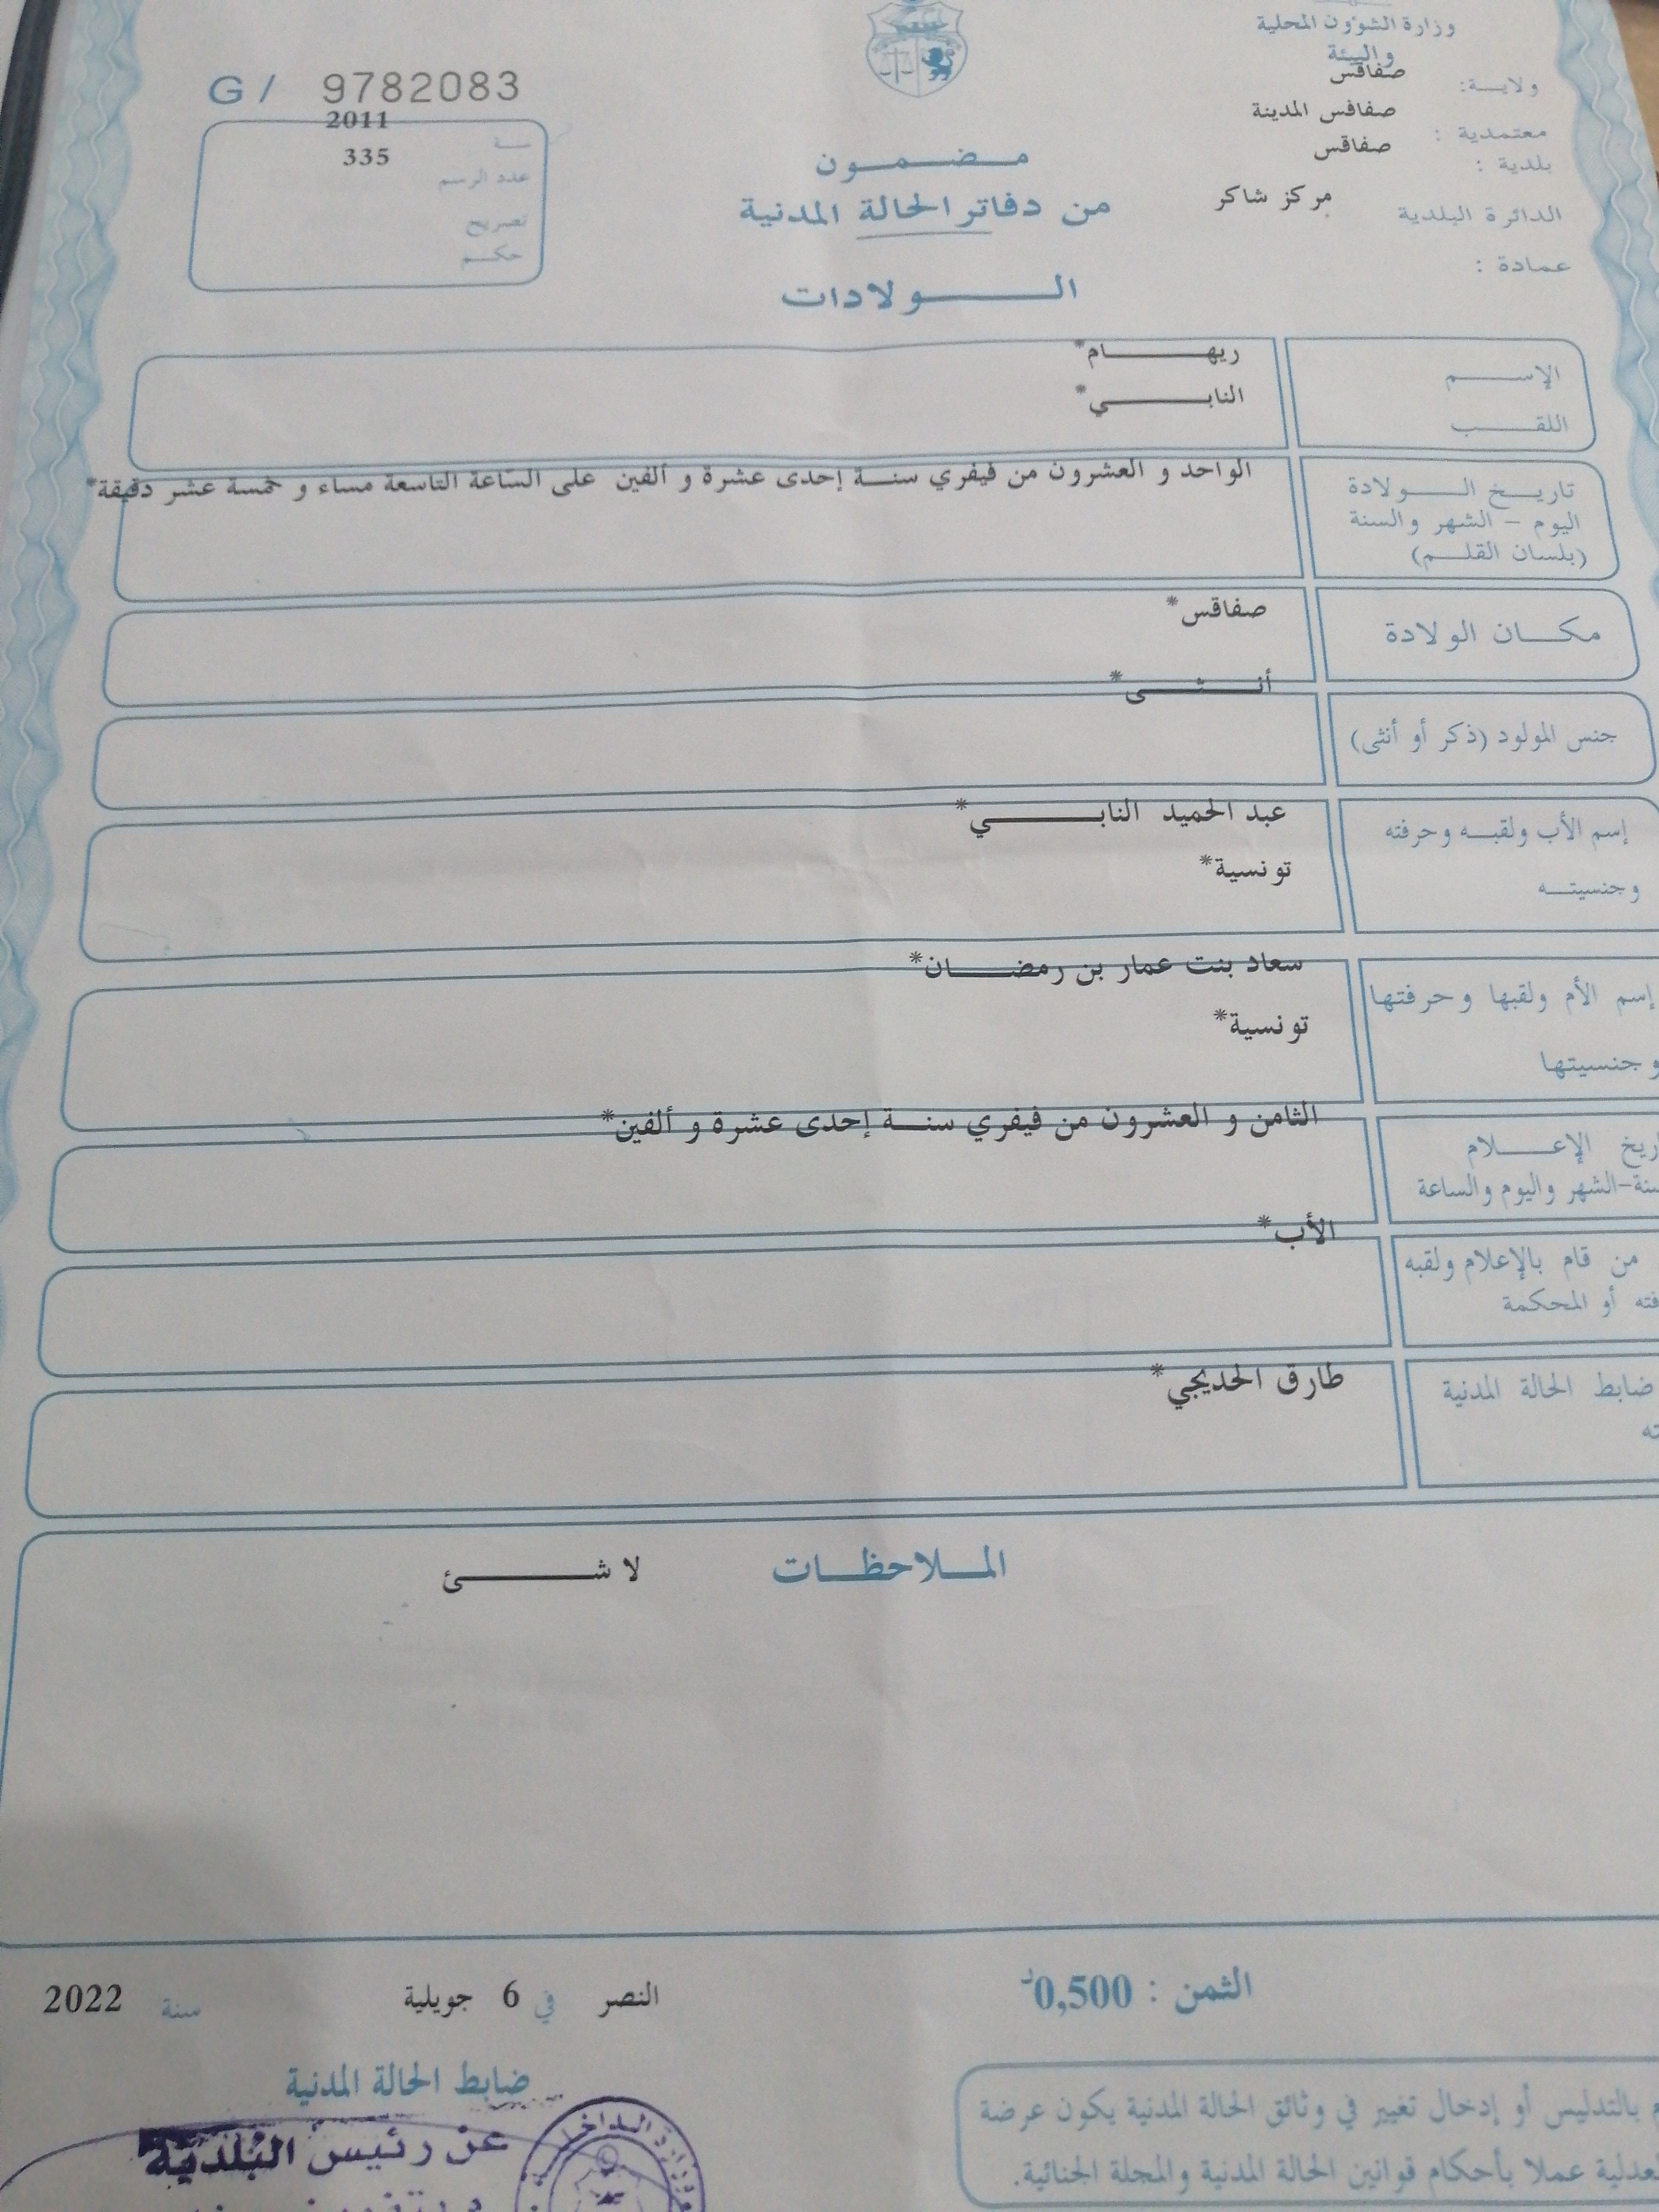 وزارة الشؤون المحلية
والبيئة
ولاية: صفاقس
معتمدية : صفاقس المدينة
بلدية : صفاقس
الدائرة البلدية مركز شاكر
عمادة :
G / 9782083
سنة 2011
عدد الرسم 335
تصريح
حكم
مضمون
من دفاتر الحالة المدنية
الولادات
الإسم ريهام*
اللقب النابي*
تاريخ الولادة الواحد و العشرون من فيفري سنة إحدى عشرة و ألفين على الساعة التاسعة مساء و خمسة عشر دقيقة*
اليوم – الشهر والسنة
(بلسان القلم)
مكان الولادة صفاقس*
أنثى*
جنس المولود (ذكر أو أنثى)
إسم الأب ولقبه وحرفته عبد الحميد النابي*
وجنسيته تونسية*
سعاد بنت عمار بن رمضان*
إسم الأم ولقبها وحرفتها
تونسية*
وجنسيتها
الثامن و العشرون من فيفري سنة إحدى عشرة و ألفين*
الإعلام
الشهر واليوم والساعة
الأب*
من قام بالإعلام ولقبه
أو المحكمة
ضابط الحالة المدنية طارق الحديجي*
الملاحظات لا شئ
الثمن : 0,500د
النصر في 6 جويلية سنة 2022
ضابط الحالة المدنية
عن رئيس البلدية
بالتدليس أو إدخال تغيير في وثائق الحالة المدنية يكون عرضة
عملا بأحكام قوانين الحالة المدنية والمجلة الجنائية.